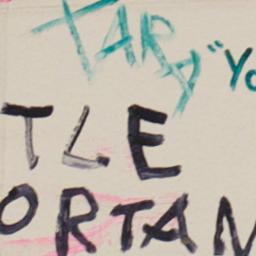 TARA "Yo
TLE
ORTAN